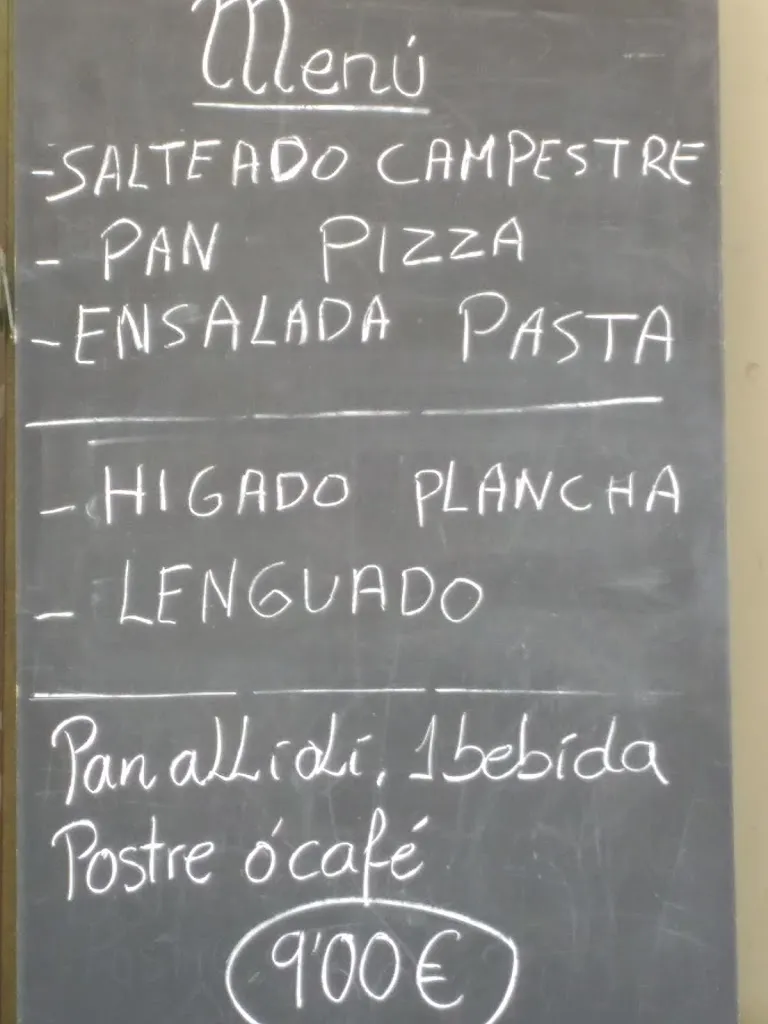 Menú
-SALTEADO CAMPESTRE
- PAN PIZZA
- ENSALADA PASTA
- HIGADO PLANCHA
- LENGUADO
Pan alLioli, 1 bebida
Postre ó café
9'00€